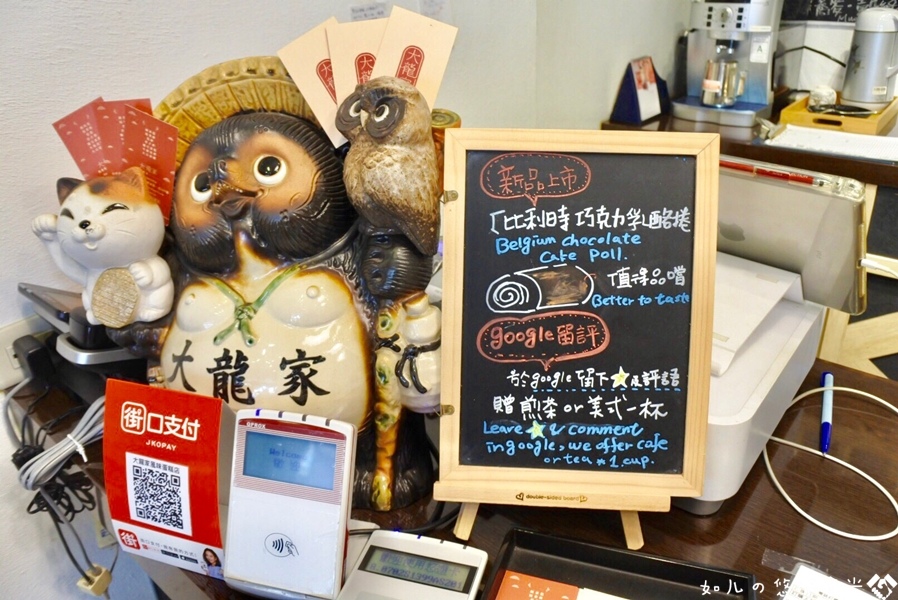 大龍
大龍
大龍家
街口支付
JKOPAY
大龍家風味蛋糕店
街
Welcome
新品上市
「比利時巧克力乳酪捲
Belgium chocolate
Cake Poll.
值得品嚐
Better to taste
google留評
於google留下★及評語
贈煎茶or美式一杯
Leave ★ & comment
in google, we offer cafe
or tea *1 cup.
double-sided board
如儿の悠